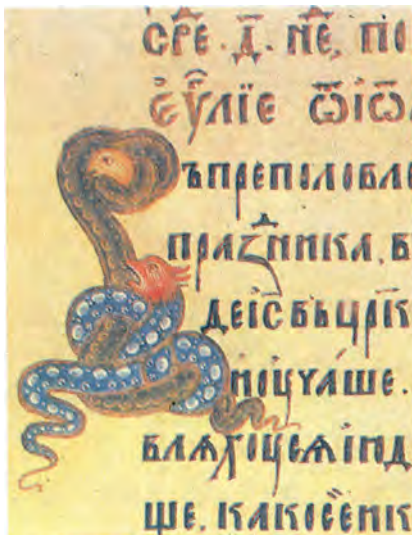 СРⷣЕ. Д҃. НЕⷣ, ПО
ЕѴⷢЛЇЕ ѾІѠ
ЪПРЕПОЛОВЛЕ
ПРАꙀⷣНИКА, В
ДЕІСВЪЦРК
ИОУЧАШЕ.
ВЛѦХОУСѦІЮД
ЩЕ, КАКОСЕИК